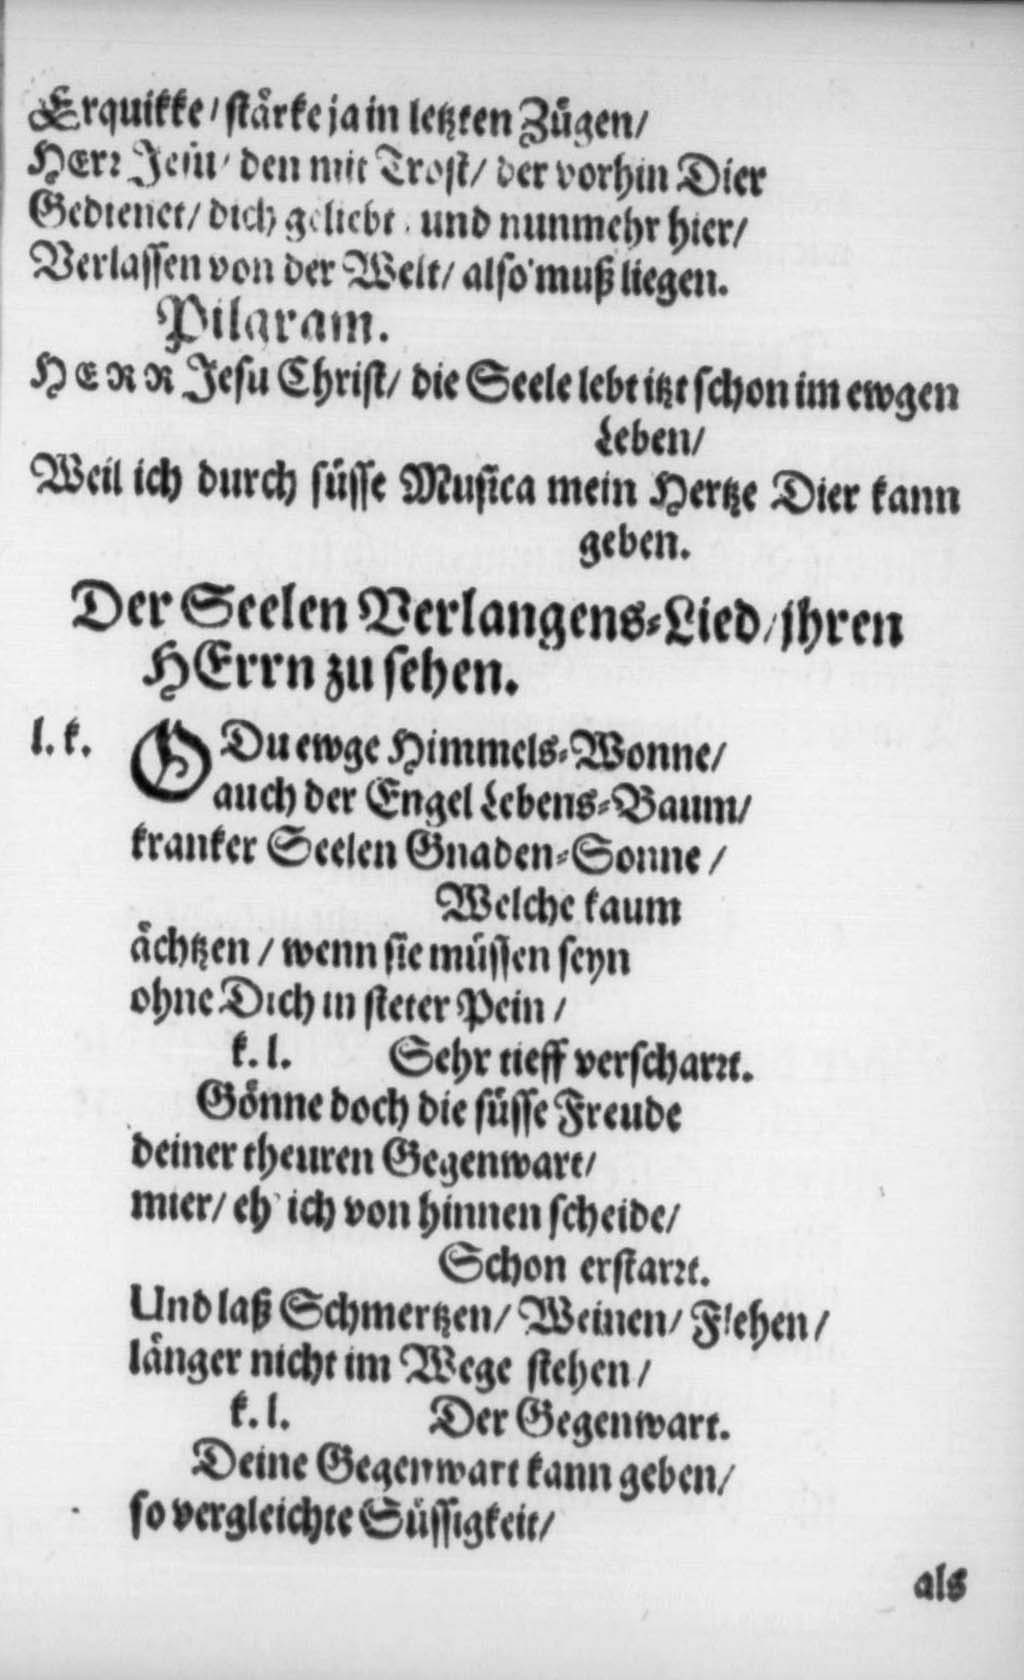 Erquikke/ stärke ja in letzten Zügen/
HErr Jesu/ den mit Trost/ der vorhin Dier
Gedienet/ dich geliebt/ und nunmehr hier/
Verlassen von der Welt/ also muß liegen.
Pilgram.
HERR Jesu Christ/ die Seele lebt itzt schon im ewgen
Leben/
Weil ich durch süsse Musica mein Hertze Dier kann
geben.
Der Seelen Verlangens-Lied/ jhren
HErrn zu sehen.
l. k. O Du ewge Himmels-Wonne/
auch der Engel Lebens-Baum/
kranker Seelen Gnaden-Sonne /
Welche kaum
ächtzen / wenn sie müssen seyn
ohne Dich in steter Pein /
k. l. Sehr tieff verscharrt.
Gönne doch die süsse Freude
deiner theuren Gegenwart/
mier/ eh' ich von hinnen scheide/
Schon erstarrt.
Und laß Schmertzen/ Weinen/ Flehen/
länger nicht im Wege stehen/
k. l. Der Gegenwart.
Deine Gegenwart kann geben/
so vergleichte Süssigkeit/
als